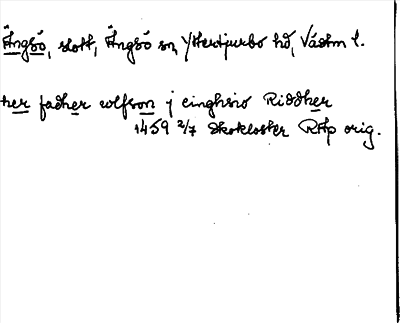 Ängsö, slott, Ängsö sn, Yttertjurbo hd, Västm l.
her fadher wlfson j einghsiø Riddher
1459 2/7 Skokloster RAp orig.